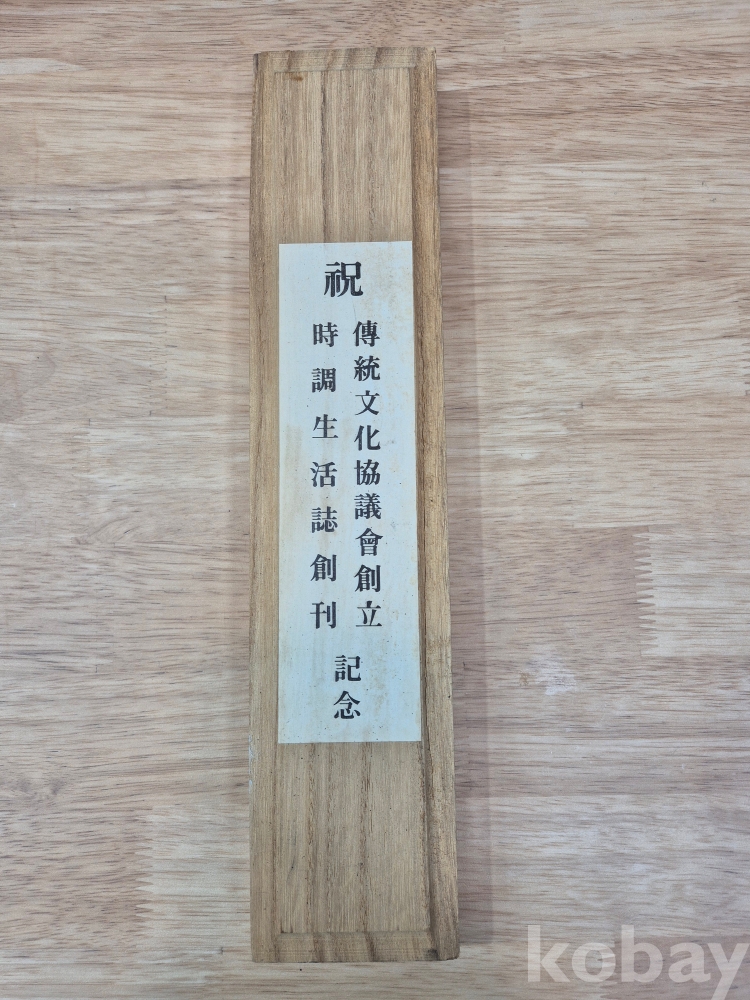 祝
傳統文化協議會創立
時調生活誌創刊
記念
kobay